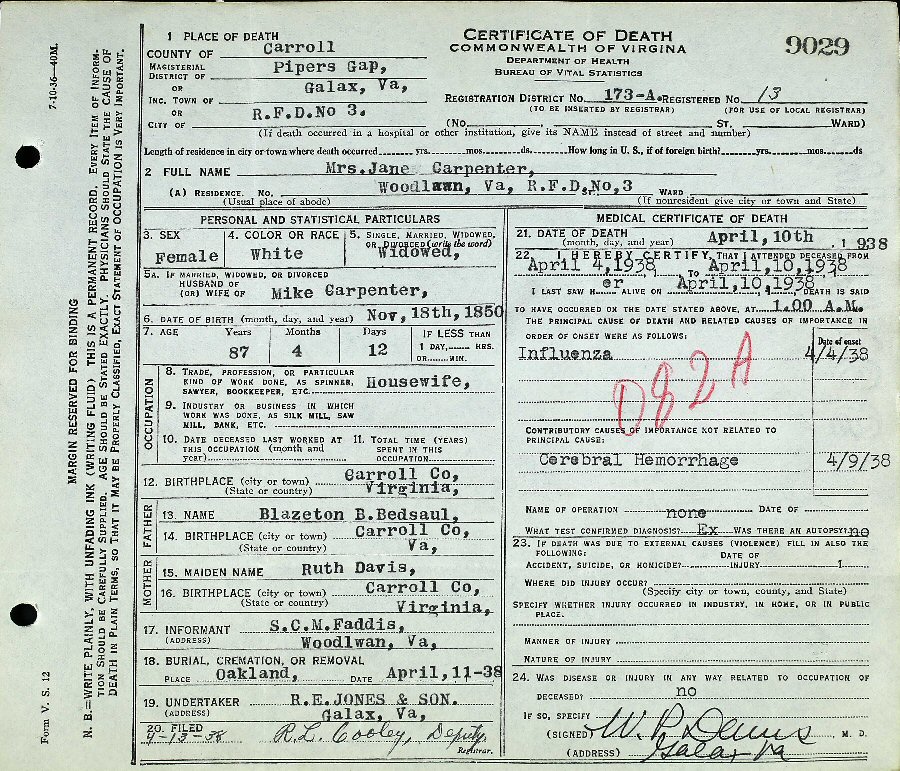 1 PLACE OF DEATH
COUNTY OF Carroll
MAGISTERIAL DISTRICT OF Pipers Gap,
OR
INC. TOWN OF Galax, Va,
OR
CITY OF R.F.D.No 3.
CERTIFICATE OF DEATH
COMMONWEALTH OF VIRGINIA
DEPARTMENT OF HEALTH
BUREAU OF VITAL STATISTICS
9029
REGISTRATION DISTRICT NO. 173-A. REGISTERED NO. 13
(TO BE INSERTED BY REGISTRAR) (FOR USE OF LOCAL REGISTRAR)
(No. ST. WARD)
(If death occurred in a hospital or other institution, give its NAME instead of street and number)
Length of residence in city or town where death occurred yrs. mos. ds. How long in U. S., if of foreign birth? yrs. mos. ds
2 FULL NAME Mrs.Jane Carpenter,
(A) RESIDENCE. No. Woodlawn, Va, R.F.D.No,3 ST. WARD
(Usual place of abode) (If nonresident give city or town and State)
PERSONAL AND STATISTICAL PARTICULARS
3. SEX Female
4. COLOR OR RACE White
5. SINGLE, MARRIED, WIDOWED, OR DIVORCED (write the word) Widowed,
5A. IF MARRIED, WIDOWED, OR DIVORCED
HUSBAND OF
(OR) WIFE OF Mike Carpenter,
6. DATE OF BIRTH (month, day, and year) Nov, 18th, 1850
7. AGE Years Months Days IF LESS THAN
87 4 12 1 DAY, HRS.
OR MIN.
OCCUPATION
8. TRADE, PROFESSION, OR PARTICULAR
KIND OF WORK DONE, AS SPINNER,
SAWYER, BOOKKEEPER, ETC. Housewife,
9. INDUSTRY OR BUSINESS IN WHICH
WORK WAS DONE, AS SILK MILL, SAW
MILL, BANK, ETC.
10. DATE DECEASED LAST WORKED AT
THIS OCCUPATION (month and
year)
11. TOTAL TIME (YEARS)
SPENT IN THIS
OCCUPATION
12. BIRTHPLACE (city or town) Carroll Co,
(State or country) Virginia,
FATHER
13. NAME Blazeton B.Bedsaul,
14. BIRTHPLACE (city or town) Carroll Co,
(State or country) Va,
MOTHER
15. MAIDEN NAME Ruth Davis,
16. BIRTHPLACE (city or town) Carroll Co,
(State or country) Virginia,
17. INFORMANT S.C.M.Faddis,
(ADDRESS) Woodlwan, Va,
18. BURIAL, CREMATION, OR REMOVAL
PLACE Oakland, DATE April,11-38
19. UNDERTAKER R.E.JONES & SON.
(ADDRESS) Galax, Va,
20. FILED
4-13-38 R.L. Cooley, Deputy
Registrar.
MEDICAL CERTIFICATE OF DEATH
21. DATE OF DEATH
(month, day, and year) April, 10th . 1 938
22. I HEREBY CERTIFY, THAT I ATTENDED DECEASED FROM
April 4,1938 TO April,10,1938
I LAST SAW H er ALIVE ON April,10,1938, DEATH IS SAID
TO HAVE OCCURRED ON THE DATE STATED ABOVE, AT 1.00 A.M.
THE PRINCIPAL CAUSE OF DEATH AND RELATED CAUSES OF IMPORTANCE IN
ORDER OF ONSET WERE AS FOLLOWS:
Date of onset
Influenza 4/4/38
082A
CONTRIBUTORY CAUSES OF IMPORTANCE NOT RELATED TO
PRINCIPAL CAUSE:
Cerebral Hemorrhage 4/9/38
NAME OF OPERATION none DATE OF
WHAT TEST CONFIRMED DIAGNOSIS? Ex WAS THERE AN AUTOPSY? no
23. IF DEATH WAS DUE TO EXTERNAL CAUSES (VIOLENCE) FILL IN ALSO THE
FOLLOWING:
ACCIDENT, SUICIDE, OR HOMICIDE? DATE OF INJURY 1
WHERE DID INJURY OCCUR?
(Specify city or town, county, and State)
SPECIFY WHETHER INJURY OCCURRED IN INDUSTRY, IN HOME, OR IN PUBLIC
PLACE.
MANNER OF INJURY
NATURE OF INJURY
24. WAS DISEASE OR INJURY IN ANY WAY RELATED TO OCCUPATION OF
DECEASED? no
IF SO, SPECIFY
(SIGNED) W. P. Davis M. D.
(ADDRESS) Galax Va
7-10-36—40M.
MARGIN RESERVED FOR BINDING
N. B.—WRITE PLAINLY, WITH UNFADING INK (WRITING FLUID) THIS IS A PERMANENT RECORD. EVERY ITEM OF INFORM-
TION SHOULD BE CAREFULLY SUPPLIED. AGE SHOULD BE STATED EXACTLY. PHYSICIANS SHOULD STATE THE CAUSE OF
DEATH IN PLAIN TERMS, SO THAT IT MAY BE PROPERLY CLASSIFIED. EXACT STATEMENT OF OCCUPATION IS VERY IMPORTANT.
Form V. S. 12